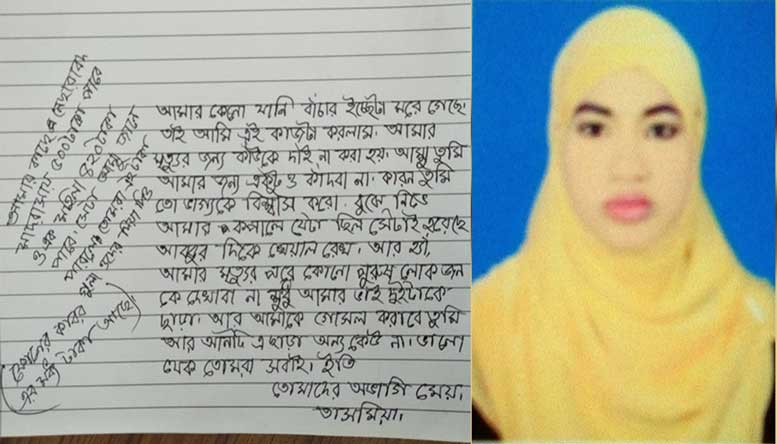 আমার কেনো যানি বাঁচার ইচ্ছেটা মরে গেছে।
তাই আমি এই কাজটা করলাম। আমার
মৃত্যুর জন্য কাউকে দাই না করা হয়। আম্মু তুমি
আমার জন্য একটু ও কাঁদবা না। কারন তুমি
তো ভাগ্যকে বিশ্বাস করো। বুঝে নিও
আমার কপালে যেটা ছিল সেটাই হয়েছে
আব্বুর দিকে খেয়াল রেখ। আর হ্যাঁ,
আমার মৃত্যুর পরে কোনো পুরুষ লোক জন
কে দেখাবা না শুধু আমার ভাই দুইটাকে
ছাড়া। আর আমাকে গোসল করাবে তুমি
আর আনটি এ ছাড়া অন্য কেউ না। ভালো
থেক তোমরা সবাই। ইতি
তোমাদের অভাগি মেয়ে,
তাসমিয়া।
আমার কাছে
মাদরাসায় ৫০০টাকা পাবে
ও এক মহিলা ৪২০টাকা
পাবে। সেটা আম্মু জানে
তোমরা এই টাকা
দিও
ফোনের কাবার
এর মধ্যে টাকা আছে।